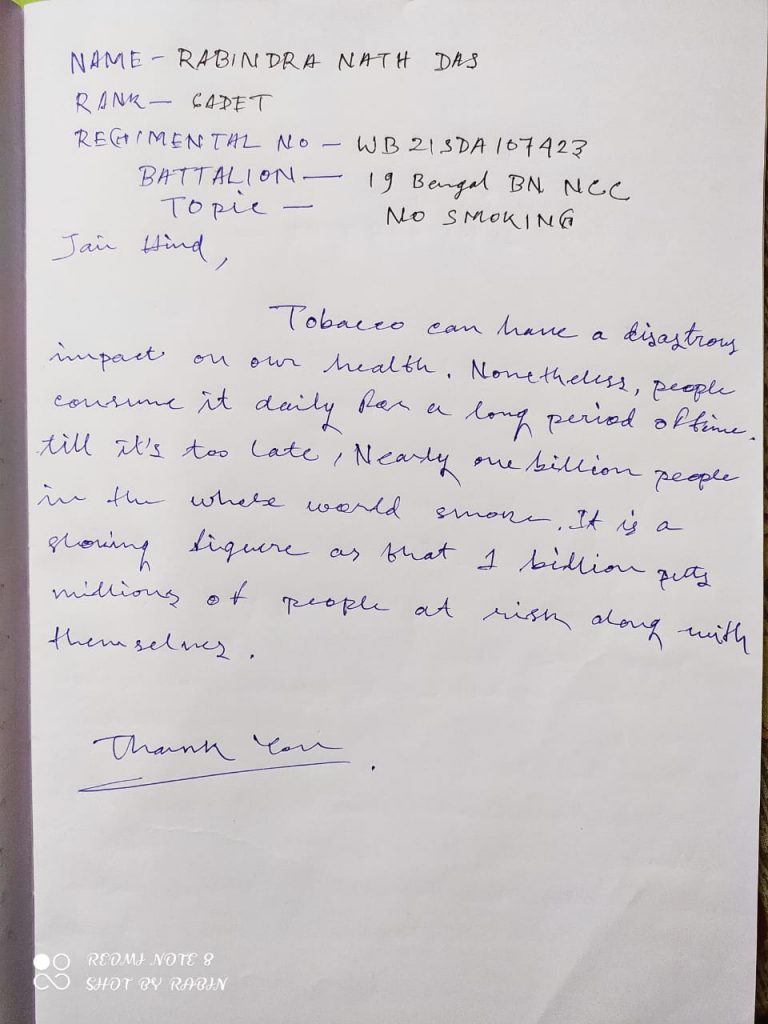 NAME - RABINDRA NATH DAS
RANK - CADET
REGIMENTAL NO - WB21SDA107423
BATTALION - 19 Bengal BN NCC
Topic - NO SMOKING
Jai Hind,
Tobacco can have a disastrous
impact on our health. Nonetheless, people
consume it daily for a long period of time.
till it's too late, Nearly one billion people
in the whole world smoke. It is a
figure as that 1 billion puts
millions of people at risk along with
themselves.
Thank You.
REDMI NOTE 8
SHOT BY RABIN